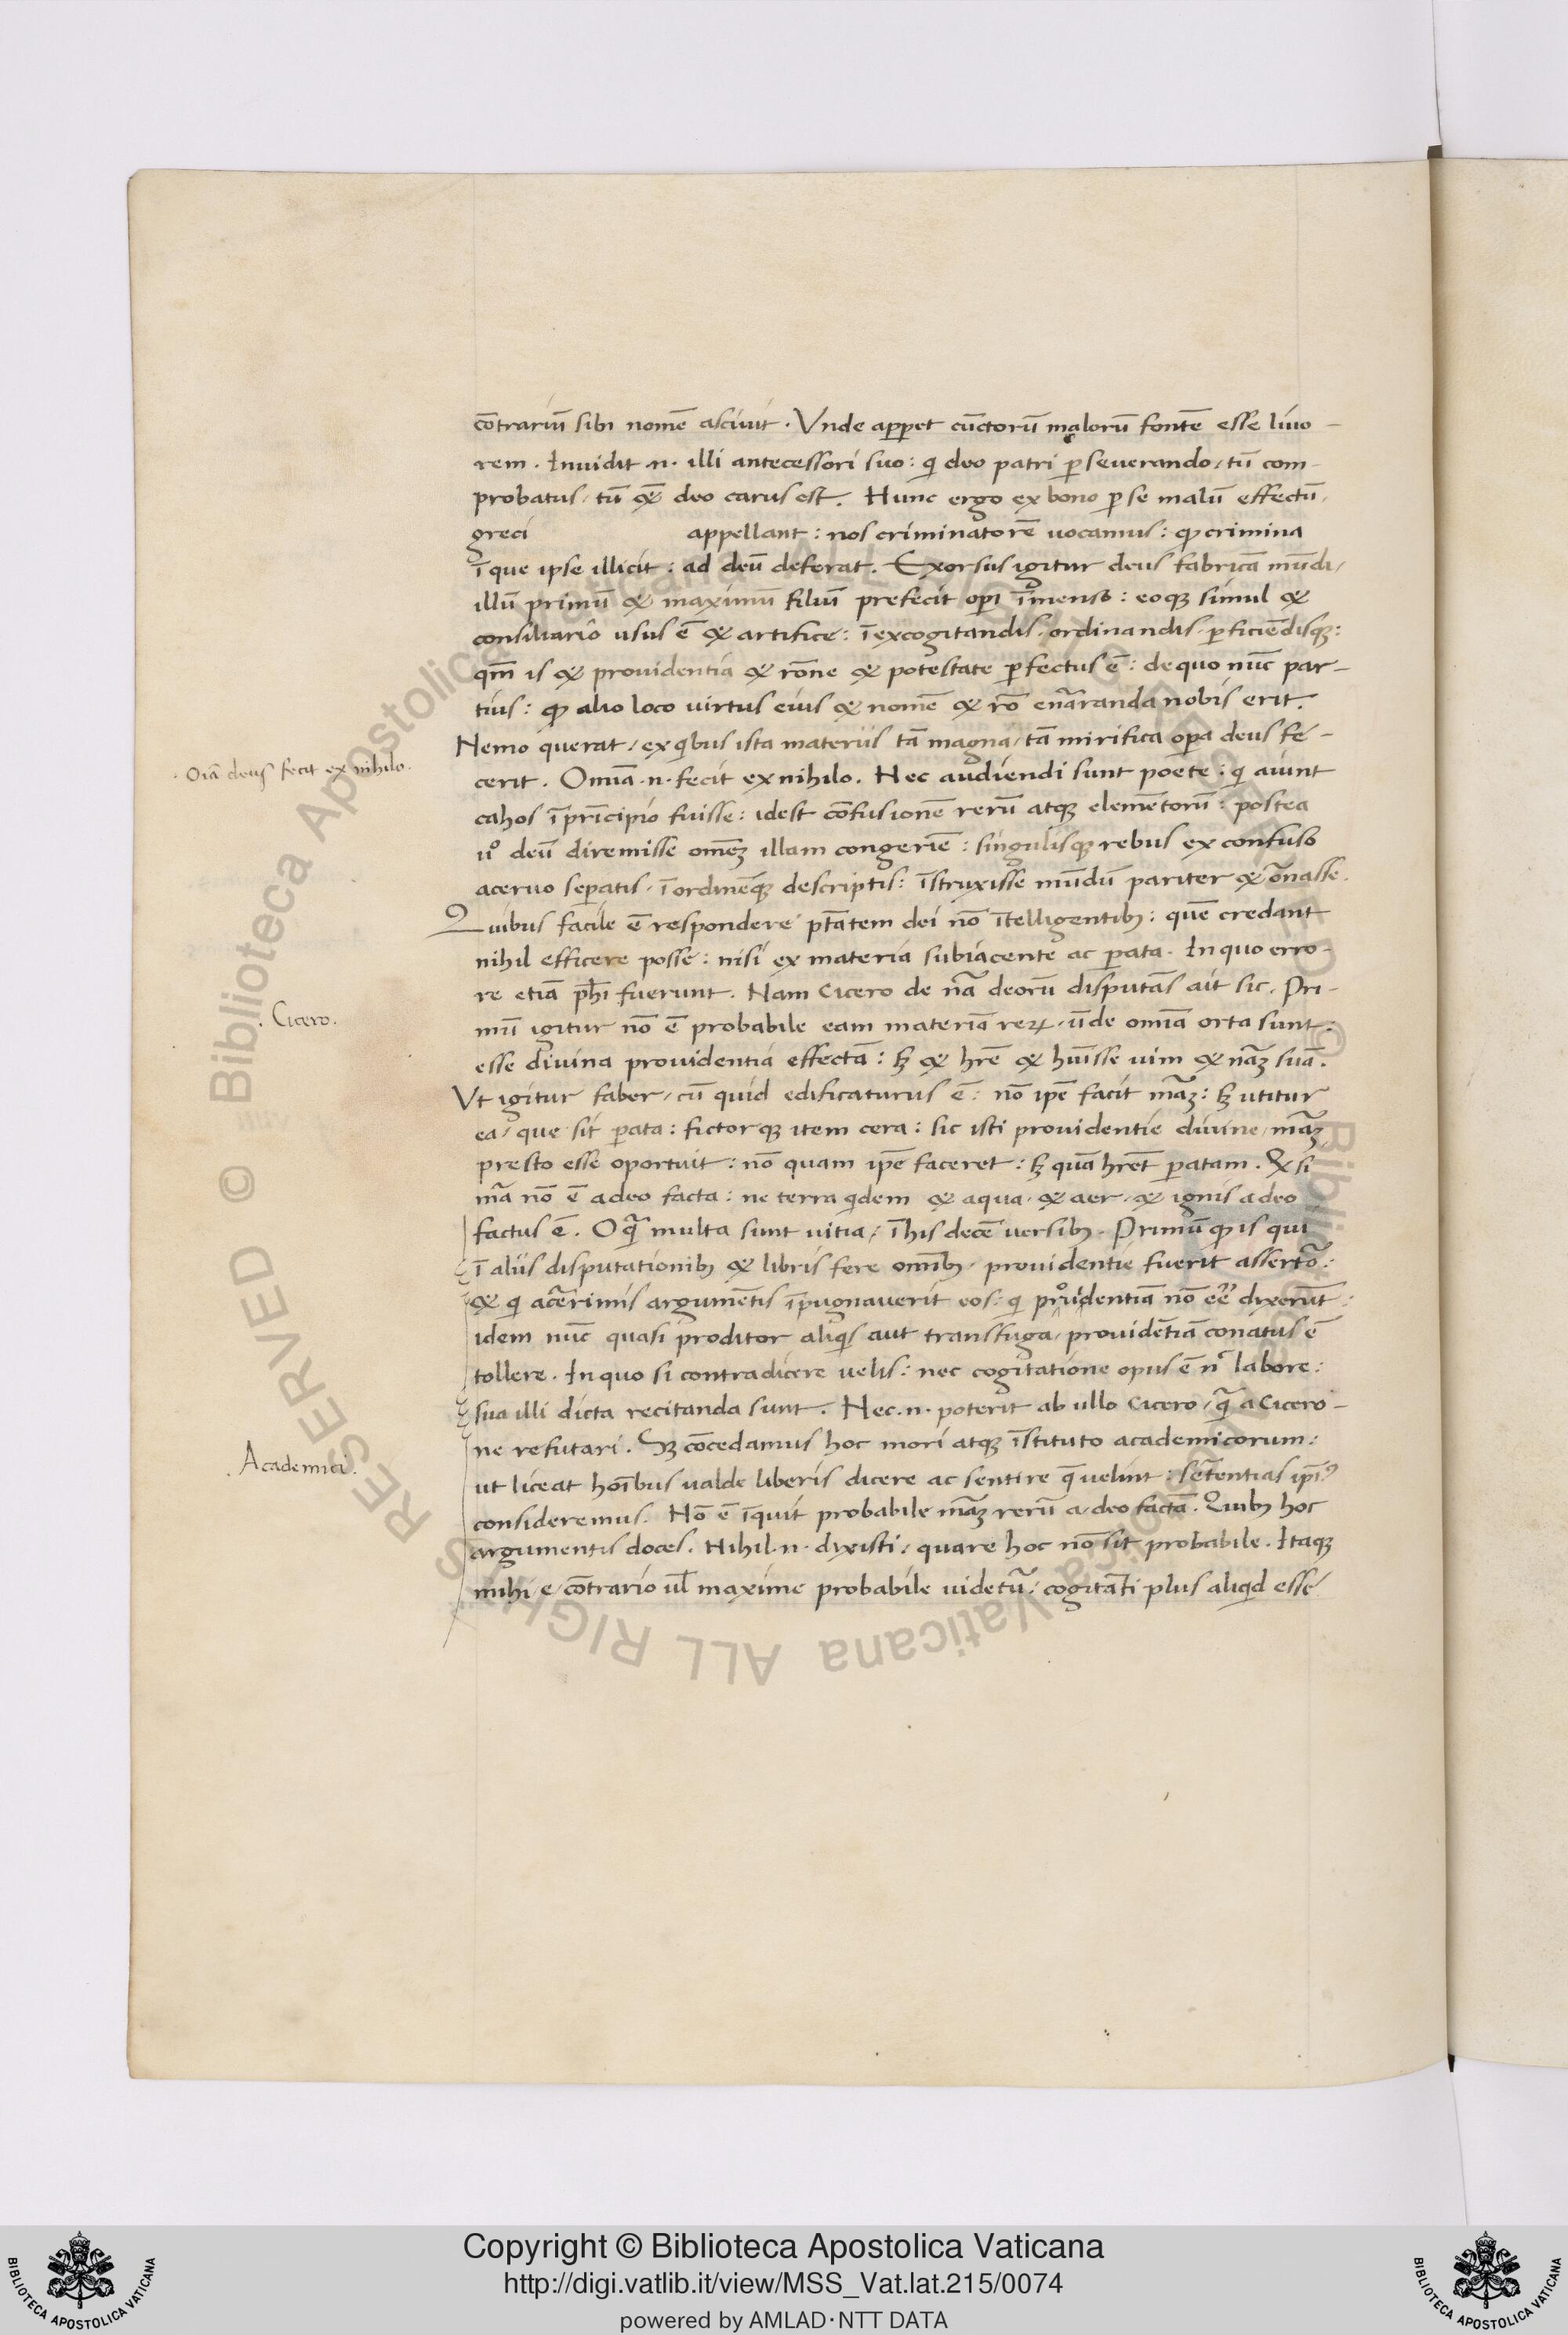 cõtrariũ sibi nomẽ asciuit. Vnde apparet cũctorũ malorũ fontẽ esse liuo-
rem. Inuidit .n. illi antecessori suo: qi deo patri perseuerando, tũ com-
probatus, tũ & deo carus est. Hunc ergo ex bono per se malũ effectũ,
greci appellant: nos criminatorẽ uocamus: quod crimina
ĩ que ipse illicit: ad deũ deferat. Exorsus igitur deus fabricã mũdi,
illũ primũ & maximũ filiũ prefecit operi ĩmenso: eoq simul &
consiliario usus ẽ & artifice: ĩ excogitandis, ordinandis, perficiẽdisq:
qm̃ is & prouidentia & rõne & potestate perfectus ẽ: de quo nũc par-
tius: quod alio loco uirtus eius & nomẽ & rõ enãrranda nobis erit.
Nemo querat, ex qibus ista materiis tã magna, tã mirifica opera deus fe-
cerit. Omĩa .n. fecit ex nihilo. Nec audiendi sunt poete: qi aiunt
cahos ĩ prĩcipio fuisse: idest cõfusionẽ rerũ atq elemẽtorũ: postea
uº deũ diremisse omẽʒ illam congeriẽ: singulisq rebus ex confuso
aceruo separatis, ĩ ordinẽq descriptis: ĩstruxisse mũdũ pariter & ornasse.
Quibus facile ẽ respondere ptãtem dei nõ ĩtelligentibʒ: quẽ credant
nihil efficere posse: nisi ex materia subiacente ac parata. In quo erro-
re etiã phĩ fuerunt. Nam Cicero de nã deorũ disputãs ait sic. Pri-
mũ igitur nõ ẽ probabile eam materiã reꝝ, ũde omĩa orta sunt:
esse diuina prouidentia effectã: sʒ & hrẽ & hũisse uim & nãʒ suã.
Vt igitur faber, cũ quid edificaturus ẽ: nõ ipẽ facit mãʒ: sʒ utitur
ea, que sit parata: fictorq item cera: sic isti prouidentie diuine, mãʒ
presto esse oportuit: nõ quam ipẽ faceret: sʒ quã hrẽt paratam. Qd si
mã nõ ẽ a deo facta: ne terra qidem & aqua, & aer, & ignis a deo
factus ẽ. O qã multa sunt uitia, ĩ his decẽ uersibʒ. Primũ quod is qui
ĩ aliis disputationibʒ & libris fere omĩbʒ, prouidentie fuerit assertor:
& qi acerrimis argumẽtis ĩpugnauerit eos: qi prouidentiã nõ eẽ dixerũt:
idem nũc quasi proditor aliqis aut transfuga, prouidẽtiã conatus ẽ
tollere. In quo si contradicere uelis: nec cogitatione opus ẽ nc labore:
sua illi dicta recitanda sunt. Nec .n. poterit ab ullo Cicero, qã a Cicero-
ne refutari. Sʒ cõcedamus hoc mori atq ĩstituto academicorum:
ut liceat hoĩbus ualde liberis dicere ac sentire q̃ uelint: sẽtentias ipĩꝰ
consideremus. Nõ ẽ ĩquit probabile mãʒ rerũ a, deo factã. Quibʒ hoc
argumentis doces. Nihil .n. dixisti, quare hoc nõ sit probabile. Itaq
mihi, e, cõtrario uł maxime probabile uidetur, cogitãti plus aliqid esse
. Oĩã deus fecit ex nihilo.
. Cicero.
. Academici.
© Biblioteca Apostolica Vaticana ALL RIGHTS RESERVED
Copyright © Biblioteca Apostolica Vaticana
http://digi.vatlib.it/view/MSS_Vat.lat.215/0074
powered by AMLAD·NTT DATA
BIBLIOTECA APOSTOLICA VATICANA
BIBLIOTECA APOSTOLICA VATICANA